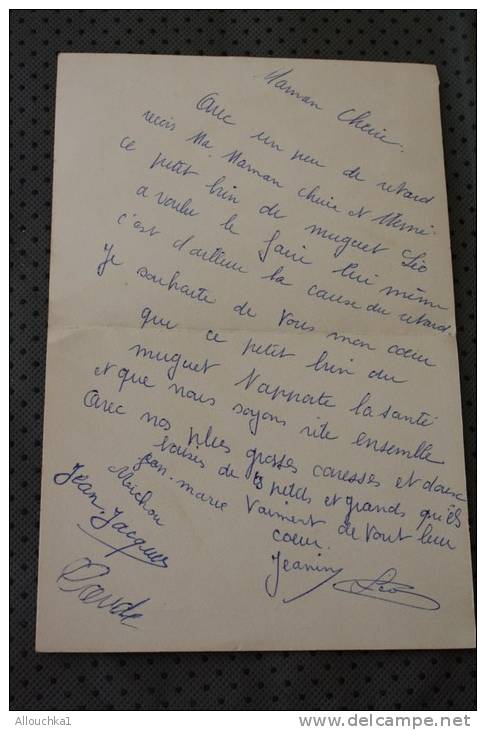 Maman Cherie.
Avec un peu de retard
recois Ma Maman cherie et Mémé
ce petit brin de muguet Léo
a voulu le faire lui même
c'est d'ailleur la cause du retard.
Je souhaite de tous mon coeur
que ce petit brin du
muguet t'apporte la santé
et que nous soyons vite ensemble
Avec nos plus grosses caresses et doux
baises de petits et grands qu'ils
t'aiment de tout leur
coeur.
jean. marie
Maichou
Jean. Jacques
Claude
Jeanin
Léo
Allouchka1
http://www.delcampe.net